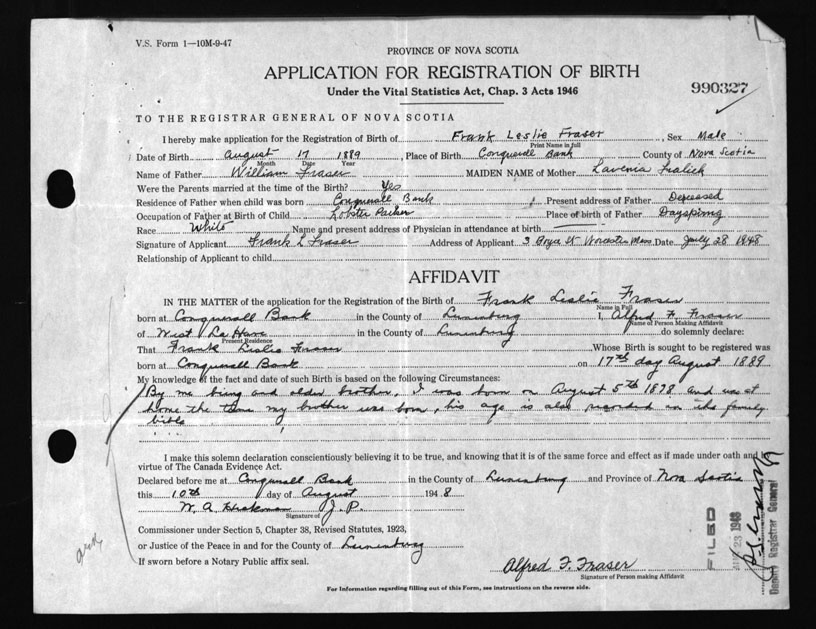 V.S. Form 1—10M-9-47
PROVINCE OF NOVA SCOTIA
APPLICATION FOR REGISTRATION OF BIRTH
Under the Vital Statistics Act, Chap. 3 Acts 1946
990327
TO THE REGISTRAR GENERAL OF NOVA SCOTIA
I hereby make application for the Registration of Birth of Frank Leslie Fraser Sex Male
Print Name in full
Date of Birth August 17 1889 Place of Birth Conquerall Bank County of Nova Scotia
Month Date Year
Name of Father William Fraser MAIDEN NAME of Mother Lavenia
Were the Parents married at the time of the Birth? Yes
Residence of Father when child was born Conquerall Bank Present address of Father Deceased
Occupation of Father at Birth of Child Lobster Packer Place of birth of Father Dayspring
Race White Name and present address of Physician in attendance at birth
Signature of Applicant Frank L Fraser Address of Applicant 3 St Worcester Mass Date July 28 1948
Relationship of Applicant to child
AFFIDAVIT
IN THE MATTER of the application for the Registration of the Birth of Frank Leslie Fraser
Name in Full
born at Conquerall Bank in the County of Lunenburg I, Alfred F. Fraser
Name of Person Making Affidavit
of West La Have in the County of Lunenburg do solemnly declare:
Present Residence
That Frank Leslie Fraser Whose Birth is sought to be registered was
born at Conquerall Bank on 17th day August 1889
My knowledge of the fact and date of such Birth is based on the following Circumstances:
By me being and older brother, I was born on August 5th 1878 and was at
home the time my brother was born, his age is also recorded in the family
bible
I make this solemn declaration conscientiously believing it to be true, and knowing that it is of the same force and effect as if made under oath and by
virtue of The Canada Evidence Act.
Declared before me at Conquerall Bank in the County of Lunenburg and Province of Nova Scotia
this 10th day of August 1948
W. A. J.P.
Signature of
Commissioner under Section 5, Chapter 38, Revised Statutes, 1923,
or Justice of the Peace in and for the County of Lunenburg
If sworn before a Notary Public affix seal.
Alfred F. Fraser
Signature of Person making Affidavit
For Information regarding filling out of this Form, see instructions on the reverse side.
FILED
23 1948
Deputy Registrar General